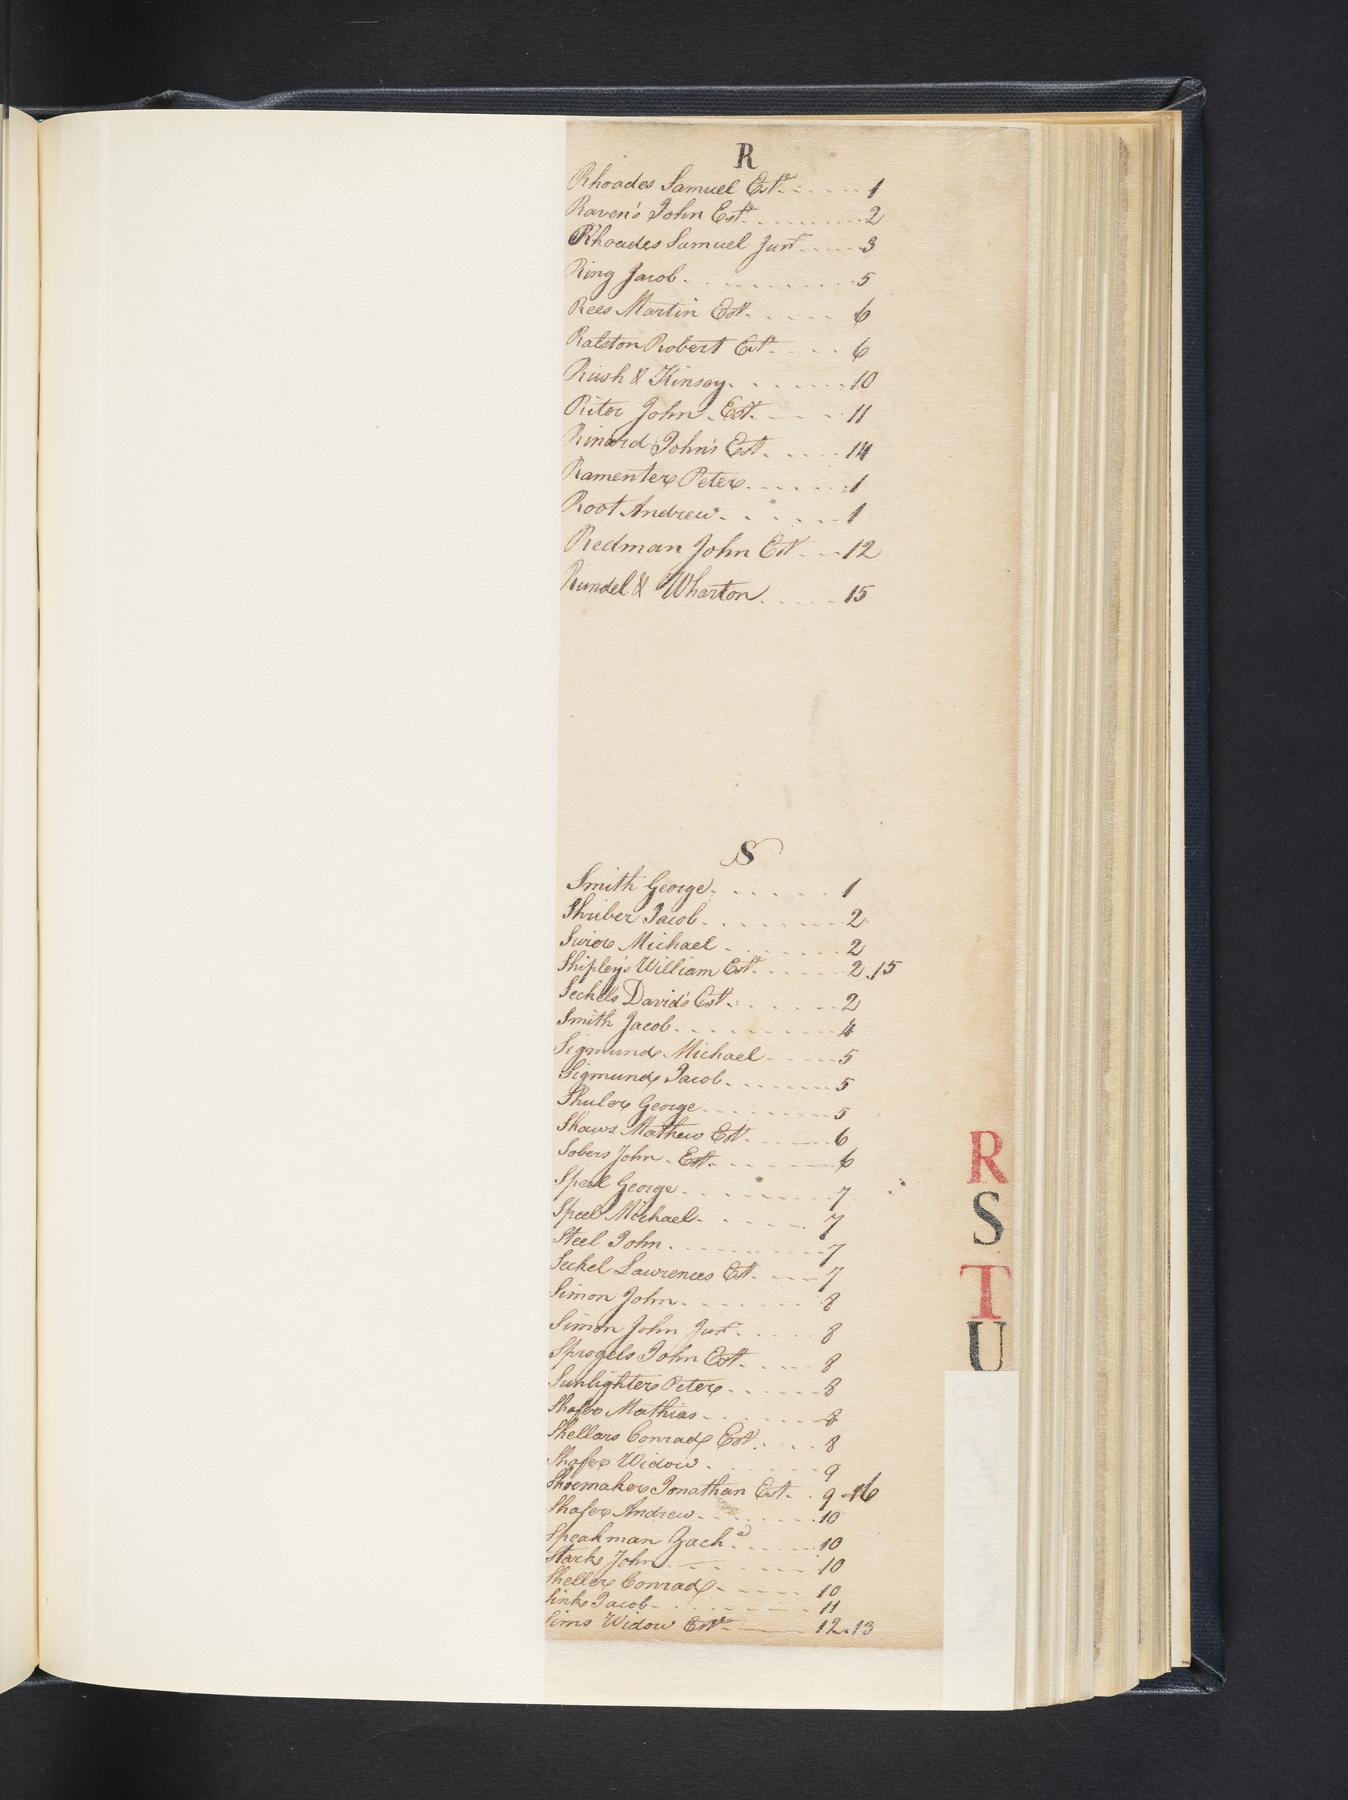 R
Rhoades Samuel Est. 1
Raven's John Est. 2
Rhoades Samuel Junr. 3
Ring Jacob. 5
Rees Martin Est. 6
Ralston Robert Est. 6
Rush & Kinsey. 10
Riter John. Est. 11
Rinard John's Est. 14
Ramenter Peter. 1
Root Andrew. 1
Redman John Est. 12
Rundel & Wharton. 15
S
Smith George. 1
Shriber Jacob. 2
Swier Michael. 2
Shipley's William Est. 2.15
Seckels David's Est. 2
Smith Jacob. 4
Sigmund Michael 5
Sigmund Jacob. 5
Shuler George. 5
Shaws Mathew Est. 6
Sobers John. Est. 6
Speel George. 7
Speel Michael. 7
Steel John. 7
Seckel Lawrences Est. 7
Simon John. 8
Simon John Junr. 8
Sprogels John Est. 8
Sunlighter Peter. 8
Shafer Mathias. 8
Shellars Conrad Est. 8
Shafer Widow. 9
Shoemaker Jonathan Est. 9-16
Shafer Andrew. 10
Speakman Zach.a 10
Stark John. 10
Sheller Conrad. 10
Sink Jacob. 11
Sims Widow Est. 12.13
R
S
T
U